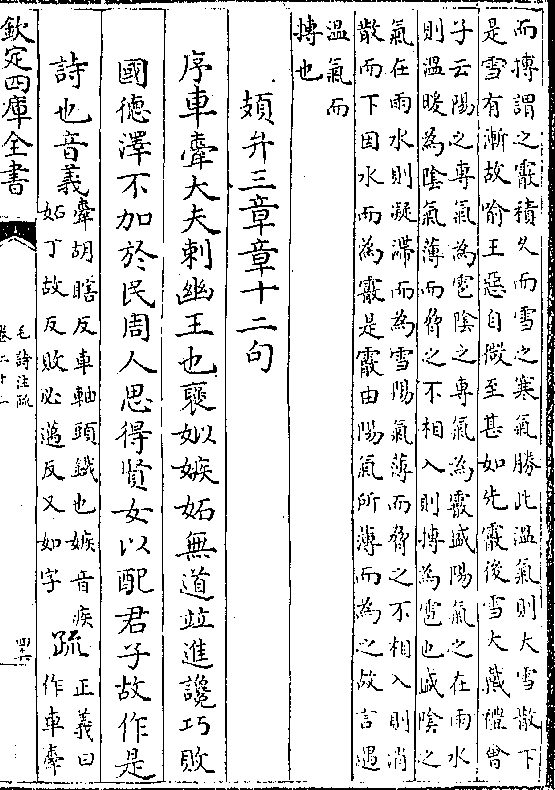 而摶謂之霰積久而雪之寒氣勝此溫氣則大雪散下
是雪有漸故喻王惡自微至甚如先霰後雪大戴禮曾
子云陽之專氣為雹陰之專氣為霰盛陽氣之在雨水
則溫暖為陰氣薄而脅之不相入則摶為雹也盛陰之
氣在雨水則凝滯而為雪陽氣薄而脅之不相入則消
散而下因水而為霰是霰由陽氣所薄而為之故言遇
溫氣而
摶也
頍弁三章章十二句
序車舝大夫刺幽王也襃姒嫉妬無道竝進讒巧敗
國德澤不加於民周人思得賢女以配君子故作是
詩也音義
舝胡瞎反車軸頭鐵也嫉音疾
妬丁故反敗必邁反又如字
疏
正義曰
作車舝
欽定四庫全書
毛詩注疏
卷二十一
四六